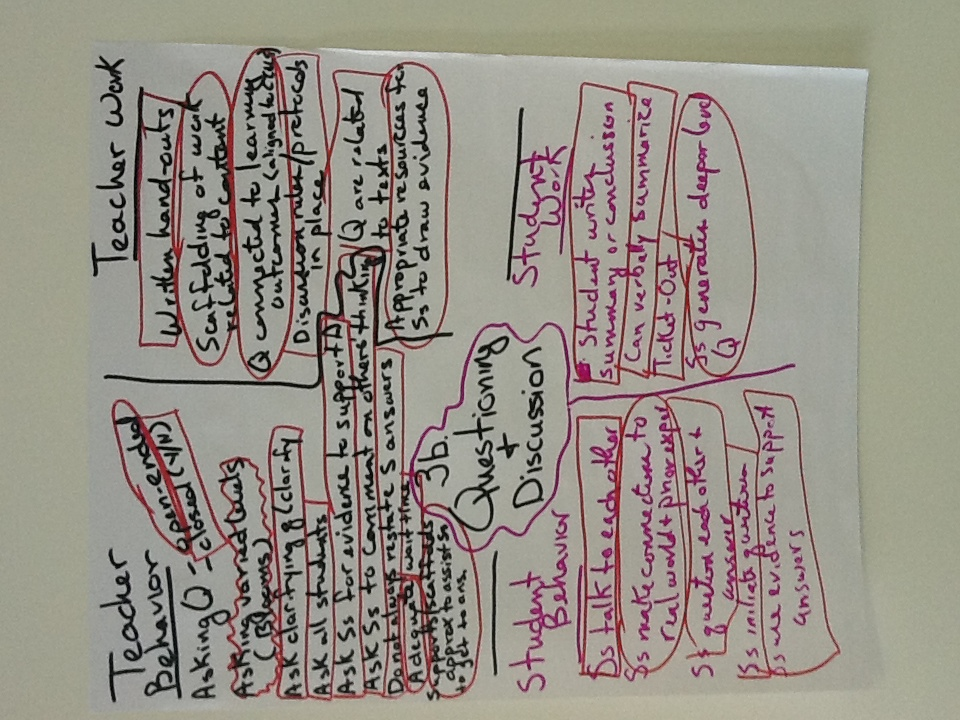 Teacher
Behavior
Asking Q - open-ended
- closed (Y/N)
Asking varied levels
(Blooms)
Ask clarifying Q/clarify
Ask all students
Ask Ss for evidence to support A
Ask Ss to comment on others thinking
Do not always restate S answers
Adequate wait time
supports/scaffolds
approx to assist Ss
to get to ans.
Teacher Work
Written hand-outs
Scaffolding of work
related to content
Q connected to learning
outcomes (aligned to
Discussion rules/protocols
in place
Q are related
to texts
Appropriate resources for
Ss to draw evidence
3b.
Questioning
+
Discussion
Student
Behavior
Ss talk to each other
Ss make connections to
real world + prior exper
Ss question each other +
answer
Ss initiate question
Ss use evidence to support
answers
Student
Work
Student written
summary or conclusion
Can verbally summarize
Ticket-Out
Ss generates deeper level
Q